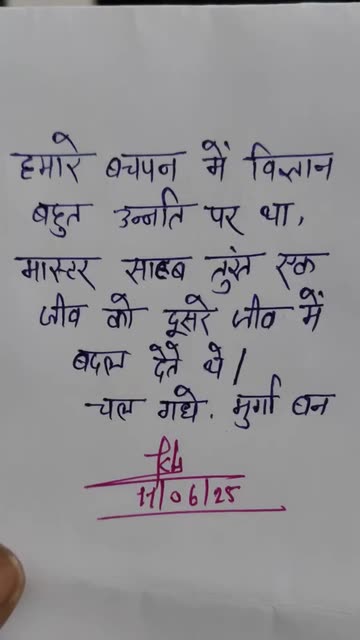 हमारे बचपन में विज्ञान
बहुत उन्नति पर था,
मास्टर साहब तुरंत एक
जीव को दूसरे जीव में
बदल देते थे |
चल गधे. मुर्गा बन
11/06/25